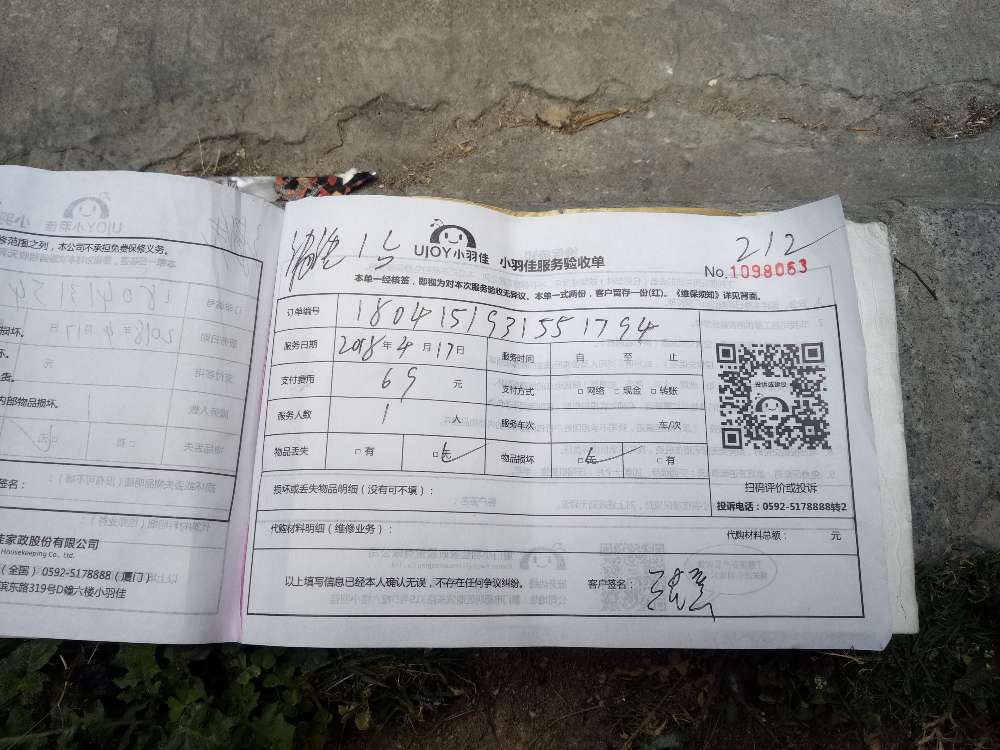 212
UJOY小羽佳 小羽佳服务验收单
No.1098063
本单一经核签，即视为对本次服务验收无异议。本单一式两份，客户留存一份(红)。《维保须知》详见背面。
订单编号 1804151931551794
服务日期 2018年4月17日 服务时间 自 至 止
支付费用 69 元 支付方式 □网络 □现金 □转账
服务人数 1 人 服务车次 车/次
物品丢失 □有 □无 物品损坏 □无 □有
投诉或建议
扫码评价或投诉
投诉电话：0592-5178888转2
损坏或丢失物品明细（没有可不填）：
代购材料明细（维修业务）： 代购材料总额： 元
以上填写信息已经本人确认无误，不存在任何争议纠纷。 客户签名：
修范围之列，本公司不承担免费保修义务。
损坏。
内部物品损坏。
签名：
佳家政股份有限公司
Housekeeping Co., Ltd.
（全国）0592-5178888（厦门）
滨东路319号D幢六楼小羽佳